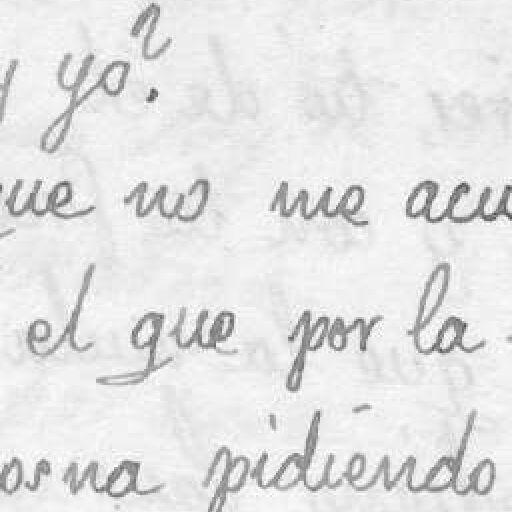 y yo?
que no me acu
el que por la
osna pidiendo